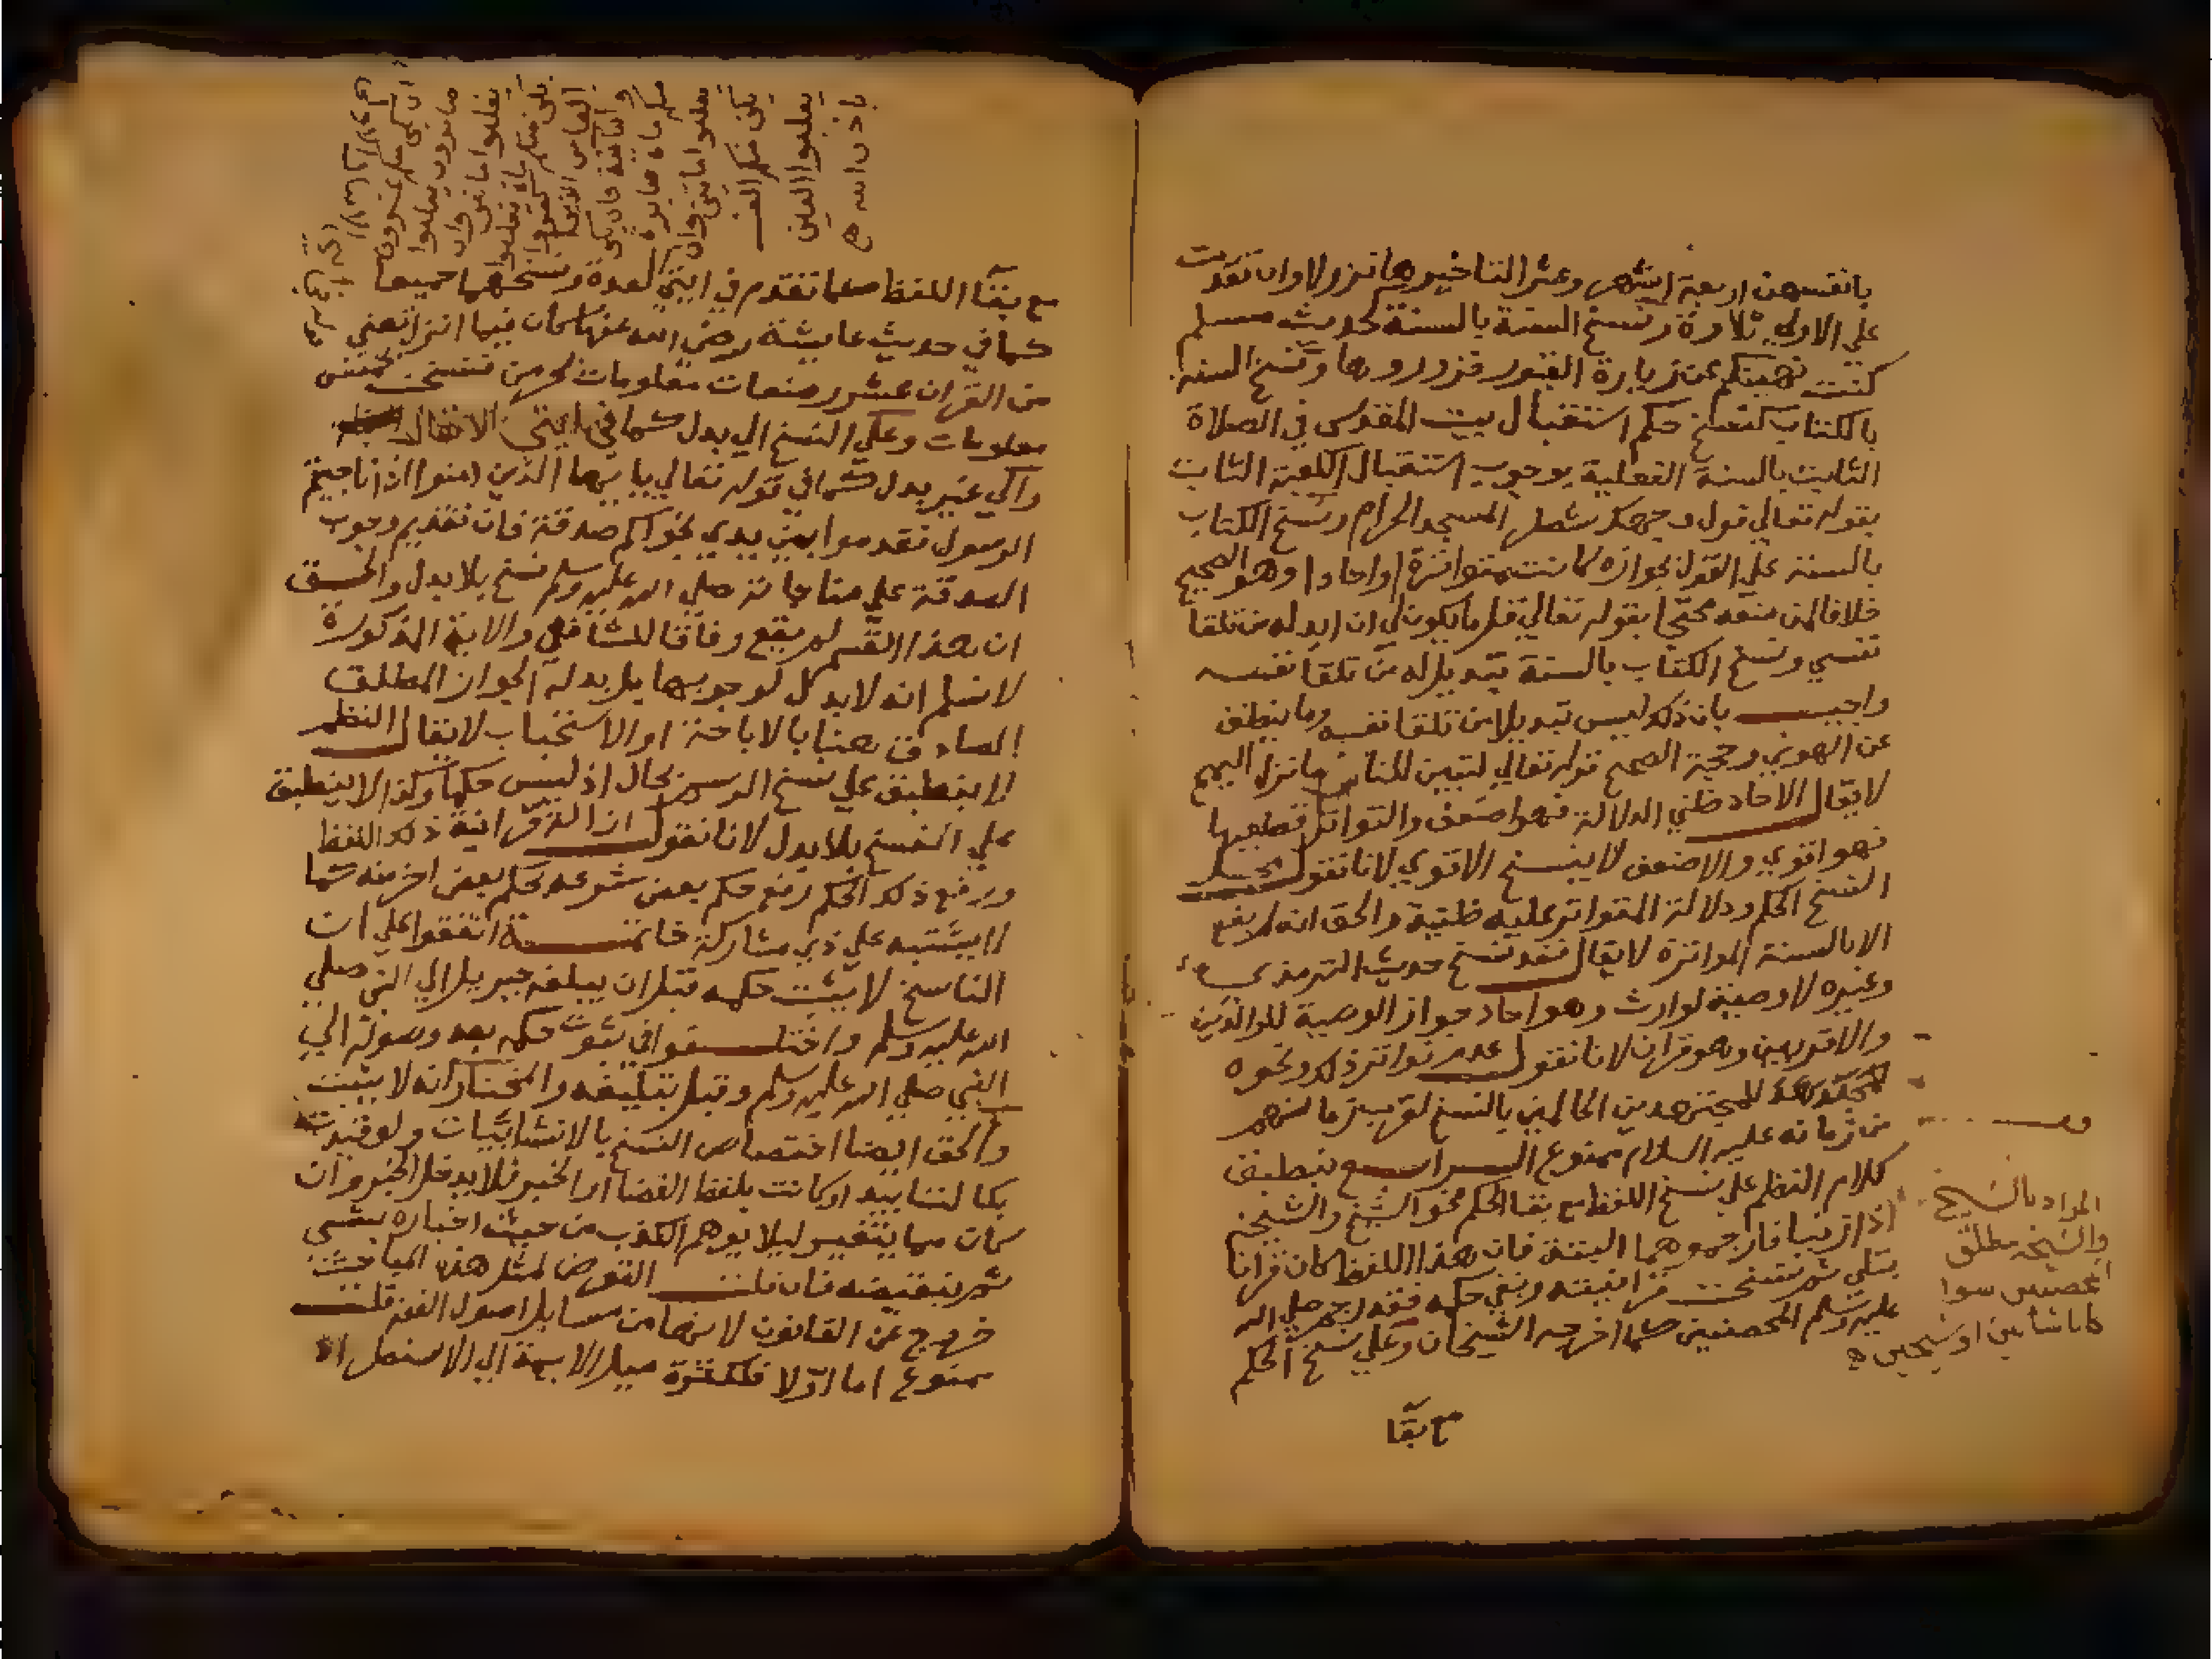 بانفسهن اربعة اشهر وعشرا لتاخيرها نزولا وان تقدمت
علي الاولي تلاوة ونسخ السنة بالسنة كحديث مسلم
كنت نهيتكم عن زيارة القبور فزوروها ونسخ السنة
بالكتاب كنسخ حكم استقبال بيت المقدس في الصلاة
الثابت بالسنة الفعلية بوجوب استقبال الكعبة الثابت
بقوله تعالي فول وجهك شطر المسجد الحرام ونسخ الكتاب
بالسنة علي القول بجوازه كانت متواترة او احادا وهو الصحيح
خلافا لمن منعه محتجا بقوله تعالي قل ما يكون لي ان ابدله من تلقا
نفسي ونسخ الكتاب بالسنة تبديل له من تلقا نفسه
واجيب بان ذلك ليس تبديلا من تلقا نفسه وما ينطق
عن الهوي وحجة الصحيح قوله تعالي لتبين للناس ما نزل اليهم
لا يقال الاحاد ظني الدلالة فهو اضعف والتواتر قطعيها
فهو اقوي والاضعف لا ينسخ الاقوي لانا نقول محل
النسخ الحكم ودلالة المتواتر عليه ظنية والحق انه لم يقع
الا بالسنة المواترة لا يقال فقد نسخ حديث الترمذي
وغيره لا وصية لوارث وهو احاد جواز الوصية للوالدين
والاقربين وهو قران لانا نقول عدم تواتر ذلك ونحوه
للمجتهدين الحاكمين بالنسخ لقرب زمانهم
من زمانه عليه السلام ممنوع الرابع ينطبق
كلام النظم علي نسخ اللفظ مع بقا الحكم نحو الشيخ والشيخة
اذا زنيا فارجموهما البتة فان هذا اللفظ كان قرانا
يتلي ثم نسخت قرانيته وبقي حكمه فقد رجم صلي الله
عليه وسلم المحصنين كما اخرجه الشيخان وعلي نسخ الحكم
مع بقا
المراد بالشيخ
والشيخة مطلق
المحصنين سوا
كانا شابين او شيخين ه
مع بقا اللفظ كما تقدم في ايتي العدة ونسخهما جميعا
كما في حديث عايشة رضي الله عنها كان فيما انزل تعني
من القران عشر رضعات معلومات يحرمن فنسخت بخمس
معلومات وعلي النسخ الي بدل كما في ايتي الانفال
والي غير بدل كما في قوله تعالي يا يها الذين امنوا اذا ناجيتم
الرسول فقدموا بين يدي نجواكم صدقة فان تقديم وجوب
الصدقة علي مناجاته صلي الله عليه وسلم نسخ بلا بدل والحق
ان هذا القسم لم يقع وفاقا للشافعي والاية المذكورة
لا نسلم انه لا بدل لوجوبها بل بدله الجواز المطلق
الصادق هنا بالاباحة او الاستحباب لا يقال النظم
لا ينطبق علي نسخ الرسم بحال اذ ليس حكما وكذا لا ينطبق
علي النسخ بلا بدل لانا نقول ازالة قرانية ذلك اللفظ
ورفع ذلك الحكم رفع حكم بعض شرعه بحكم بعض اخر منه كما
لا يشتبه علي ذي مشاركة خاتمة اتفقوا علي ان
الناسخ لا يثبت حكمه قبل ان يبلغه جبريل الي النبي صلي
الله عليه وسلم واختلفوا في ثبوت حكمه بعد وصوله الي
النبي صلي الله عليه وسلم وقبل تبليغه والمختار انه لا يثبت
والحق ايضا اختصاص النسخ بالانشائيات ولو قيدت
بكالتابيد او كانت بلفظ القضا او الخبر فلا يدخل الخبر وان
كان مما يتغير ليلا يوهم الكذب من حيث اخباره بشي
ثم بنقيضه فان قلت التعرض لمثل هذه المباحث
خروج عن القانون لانها من مسايل اصول الفقه قلت
ممنوع اما اولا فلكثرة ميل الابهة الي الاستطراد
ان يكن منكم عشرون
صابرون يغلبوا
مايتين وان
يكن منكم ماية يغلبوا
الفا من الذين كفروا
والناسخة فان يكن
منكم ماية صابرة
يغلبوا مايتين وان
يكن منكم الف
يغلبوا الفين
باذن الله ه